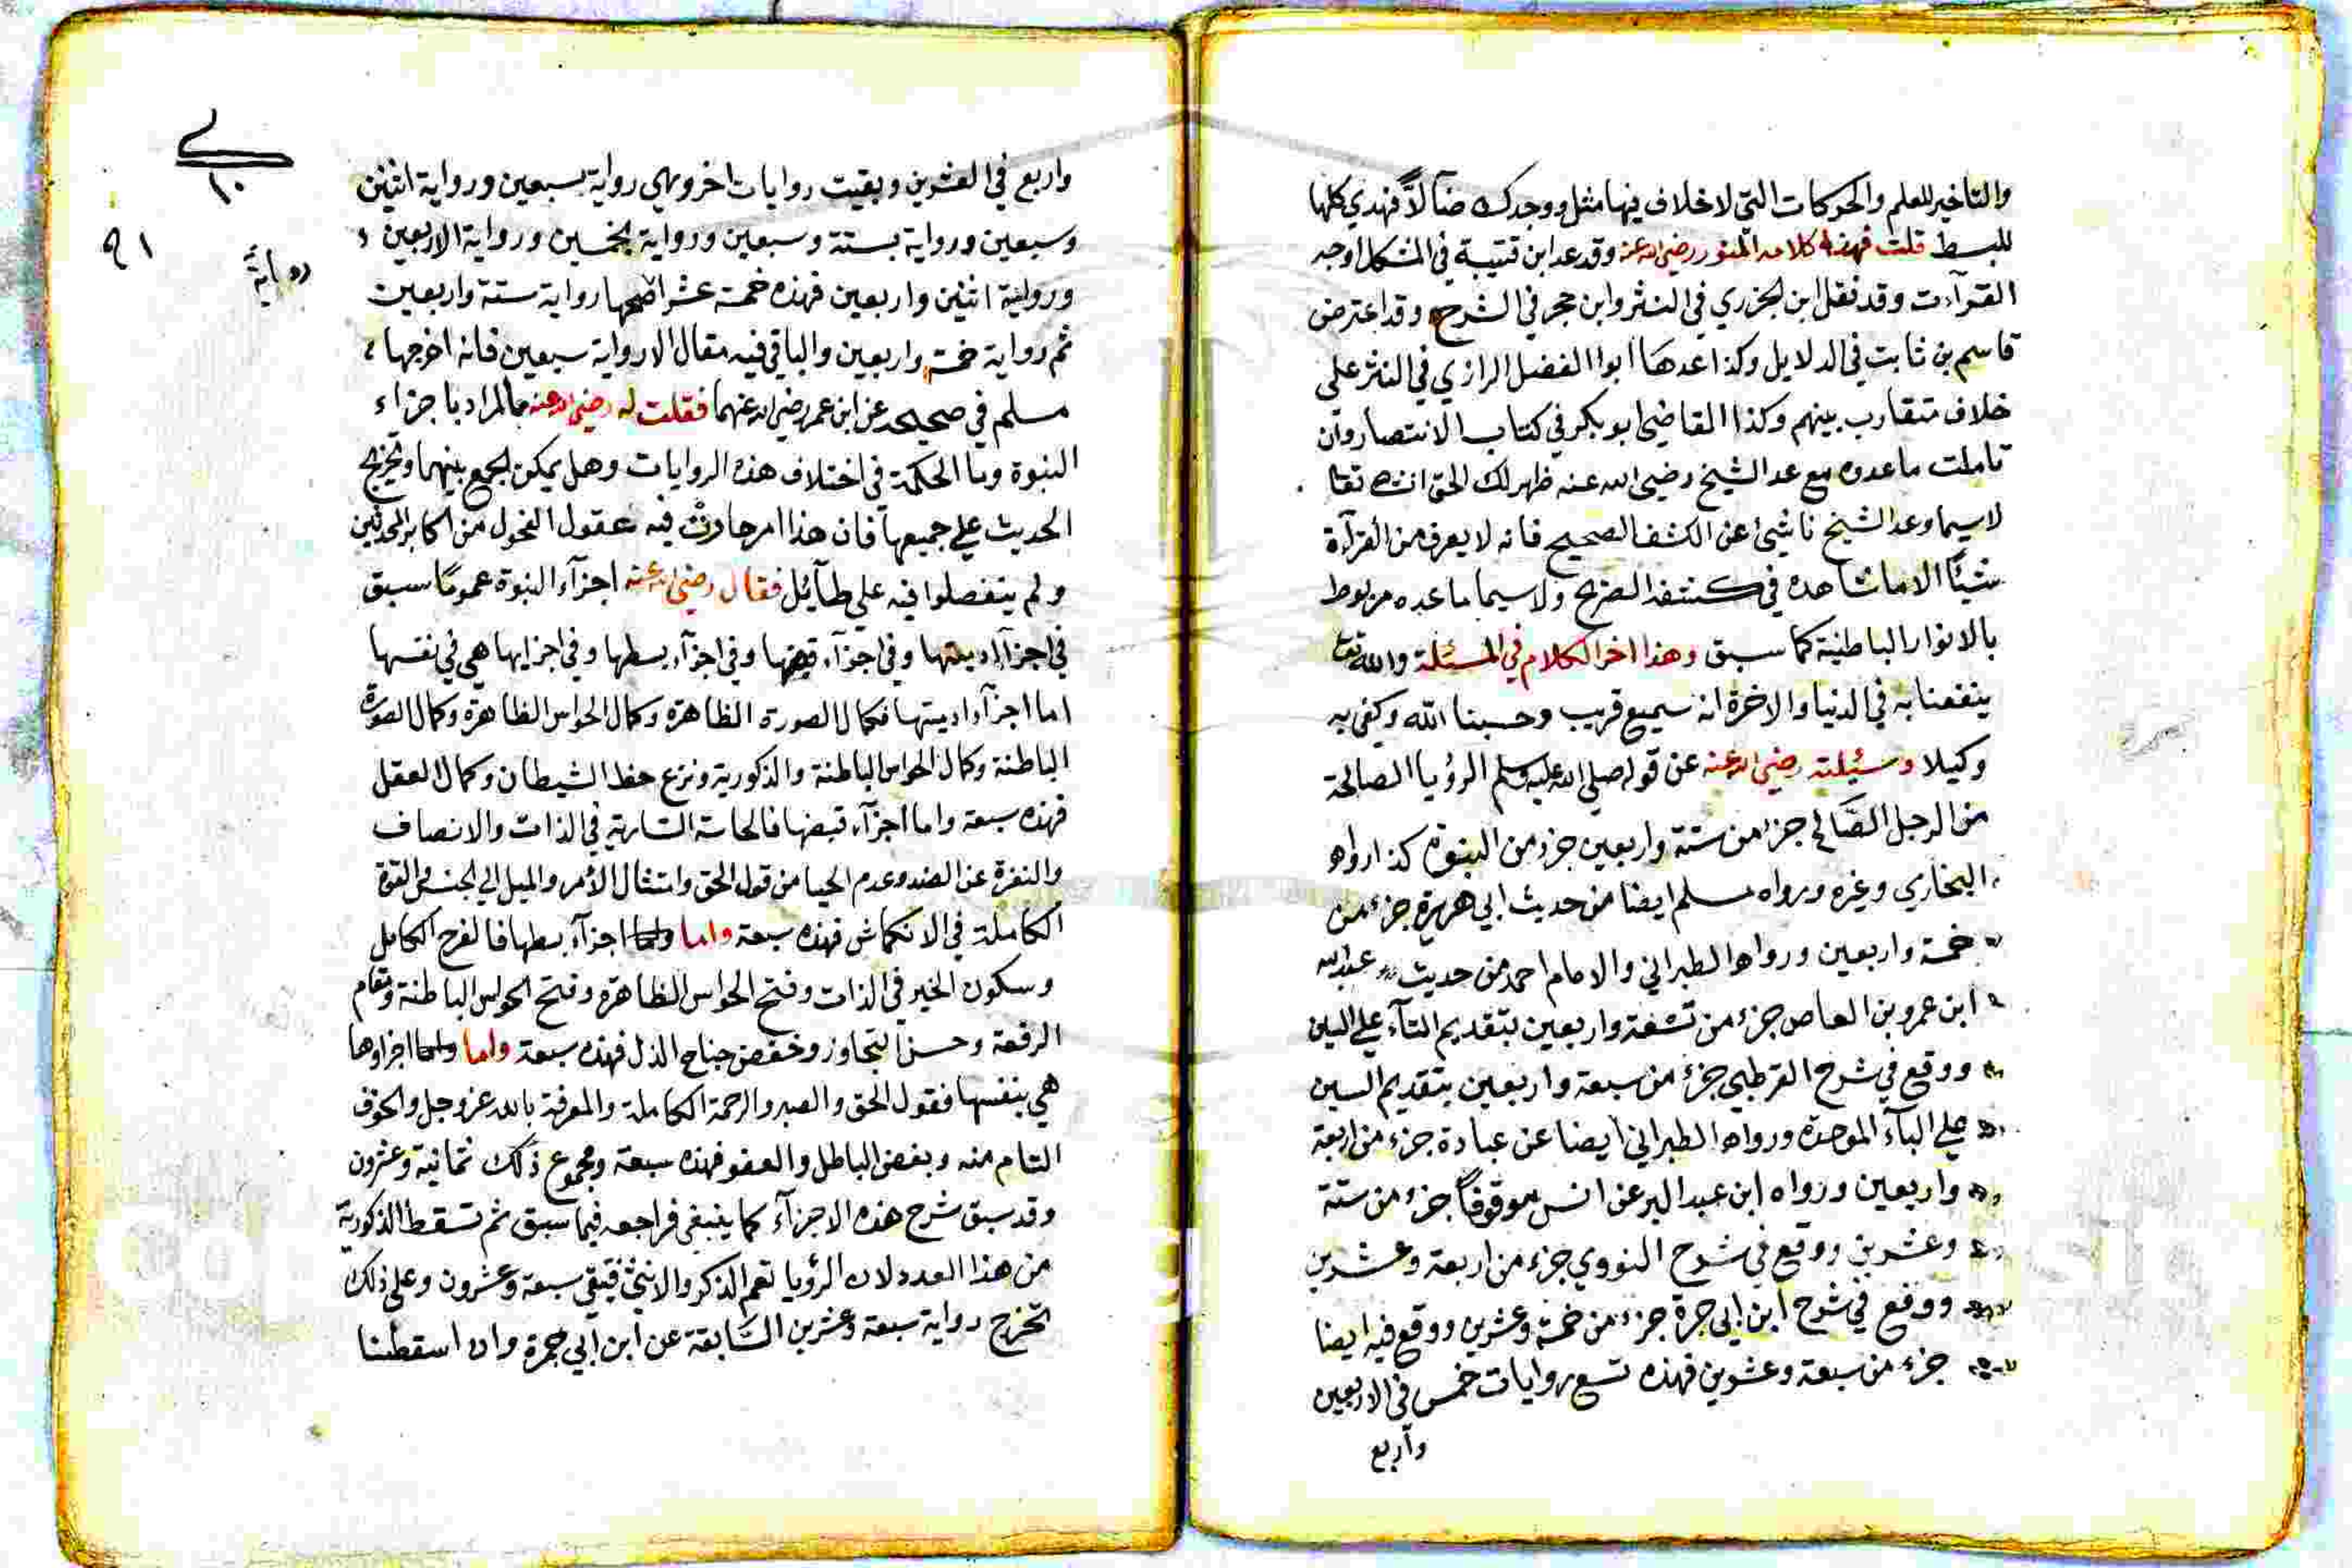 والتاخير للعلم والحركات التي لا خلاف فيها مثل ووجدك ضآلاً فهدي كلها
للبسط قلت فهذا كلامه المنور رضي الله عنه وقد عد ابن قتيبة في المشكل اوجه
القرآءت وقد نقل ابن الجزري في النشر وابن حجر في الشرح وقد اعترض
قاسم بن ثابت في الدلايل وكذا عدها ابوا الفضل الرازي في النشر على
خلاف متقارب بينهم وكذا القاضي ابو بكر في كتاب الانتصار وان
تاملت ما عدوه مع عد الشيخ رضي الله عنه ظهر لك الحق انشاء تعا
لا سيما وعد الشيخ ناشئ عن الكشف الصحيح فانه لا يعرف من القرآءة
شيئاً الا ما شاهده في كشفه الصريح ولا سيما ما عده مربوط
بالانوار الباطنية كما سبق وهذا اخر الكلام في المسئلة والله تعا
ينفعنا به في الدنيا والاخرة انه سميع قريب وحسبنا الله وكفى به
وكيلا وسئلته رضي الله عنه عن قوله صلي الله عليه وسلم الرؤيا الصالحة
من الرجل الصَّالح جزء من ستة واربعين جزء من النبوة كذا رواه
البخاري وغيره ورواه مسلم ايضا من حديث ابي هريرة جزء من
خمسة واربعين ورواه الطبراني والامام احمد من حديث عبد الله
ابن عمرو بن العاص جزء من تسعة واربعين بتقديم التآء علي السين
ووقع في شرح القرطبي جزء من سبعة واربعين بتقديم السين
علي البآء الموحدة ورواه الطبراني ايضا عن عبادة جزء من اربعة
واربعين ورواه ابن عبد البر عن انس موقوفاً جزء من ستة
وعشرين ووقع في شرح النووي جزء من اربعة وعشرين
ووقع في شرح ابن ابي جمرة جزء من خمسة وعشرين ووقع فيه ايضا
جزء من سبعة وعشرين فهذه تسع روايات خمس في الاربعين
وأربع
١٠
٩١
واربع في العشرين وبقيت روايات اخر وهي رواية سبعين ورواية اثنين
وسبعين ورواية بستة وسبعين ورواية بخمسين ورواية الاربعين
رواية
ورواية اثنين واربعين فهذه خمسة عشر اصحها رواية ستة واربعين
ثم رواية خمسة واربعين والباقي فيه مقال الا رواية سبعين فانه اخرجها
مسلم في صحيحه عن ابن عمر رضي الله عنهما فقلت له رضي الله عنه ما المراد باجزاء
النبوة وما الحكمة في اختلاف هذه الروايات وهل يمكن الجمع بينهما وتخريج
الحديث علي جميعها فان هذا امر حارت فيه عقول الفحول من اكابر المحدثين
ولم ينفصلوا فيه علي طآئل فقال رضي الله عنه اجزآء النبوة عموما سبق
في اجزآء ادميتها وفي اجزآء قبضها وفي اجزآء بسطها وفي اجزايها هي في نفسها
اما اجزآء ادميتها فكمال الصورة الظاهرة وكمال الحواس الظاهرة وكمال الصورة
الباطنة وكمال الحواس الباطنة والذكورية ونزع حظ الشيطان وكمال العقل
فهذه سبعة واما اجزآء قبضها فالحاسة السارية في الذات والانصاف
والنفرة عن الضد وعدم الحيا من قول الحق وامتثال الأمر والميل الي الجنس والقوة
الكاملة في الانكماش فهذه سبعة واما اجزآء بسطها فالفرح الكامل
وسكون الخير في الذات وفتح الحواس الظاهرة وفتح الحواس الباطنة ومقام
الرفعة وحسن التجاوز وخفض جناح الذل فهذه سبعة واما اجزاوها
هي بنفسها فقول الحق والصبر والرحمة الكاملة والمعرفة بالله عز وجل والخوف
التام منه وبغض الباطل والعفو فهذه سبعة ومجموع ذلك ثمانية وعشرون
وقد سبق شرح هذه الاجزآء كما ينبغي فراجعه فيما سبق ثم تسقط الذكورية
من هذا العدد لان الرؤيا تعم الذكر والانثي فيبقي سبعة وعشرون وعلي ذلك
تخرج رواية سبعة وعشرين السَّابقة عن ابن ابي جمرة وان اسقطنا